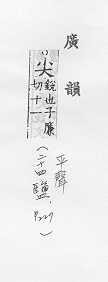 廣韻
尖銳也子廉
切十一
（二十四鹽．平聲
P.227）